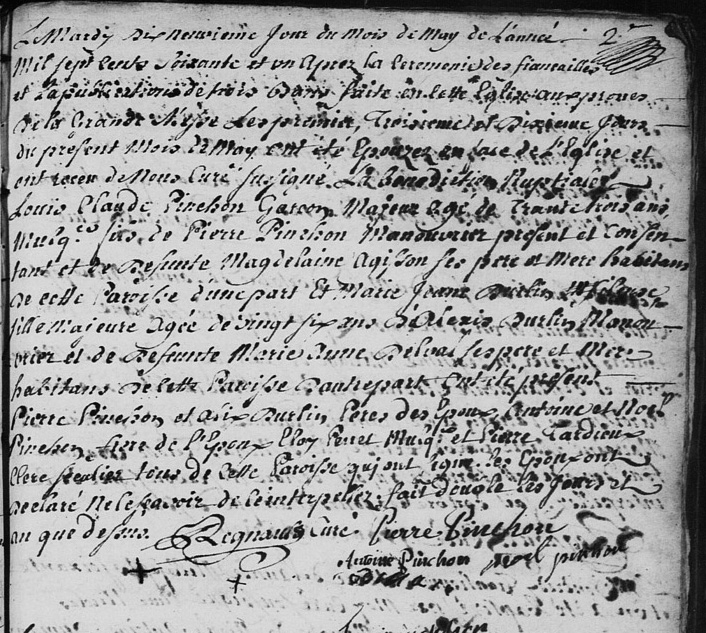 Le Mardy Dix neuvieme Jour du Mois de May de L'année
Mil sept cents Soixante et un Aprez la Ceremonie des fiancailles
et La publications de trois bans faite en Cette Eglise aux prones
De la Grande Messe Les premier, Troisieme et Dixieme Jours
du présent Mois de May ont été Epouzez en face de L'Eglise et
ont receu de Nous Curé sussigné La Benediction Nuptiale
Louis Claude Pinchon Garcon Majeur agé de Trante trois ans
Musq.er fils de Pierre Pinchon Manouvrier present et Consen-
tant et de Defunte Magdelaine Agisson ses pere et Mere habitans
de cette Paroisse d'une part Et Marie Jeanne Burlin
fille Majeure Agée de vingt six ans D'Alexis Burlin Manou-
vrier et de Defunte Marie Anne Delval ses pere et Mere
habitans de Cette Paroisse D'autre part Ont été présens
Pierre Pinchon et Alix Burlin Peres des Epoux Antoine et Noel
Pinchon frere de l'Epoux Eloy Musq.er et Pierre Tardieu
Clerc Seculier tous de Cette Paroisse qui ont signé les Epoux ont
Declaré Ne le scavoir de Ce interpellez fait double les Jour et
an que dessus Regnault Curé Pierre Pinchon
Antoine Pinchon noel pinchon